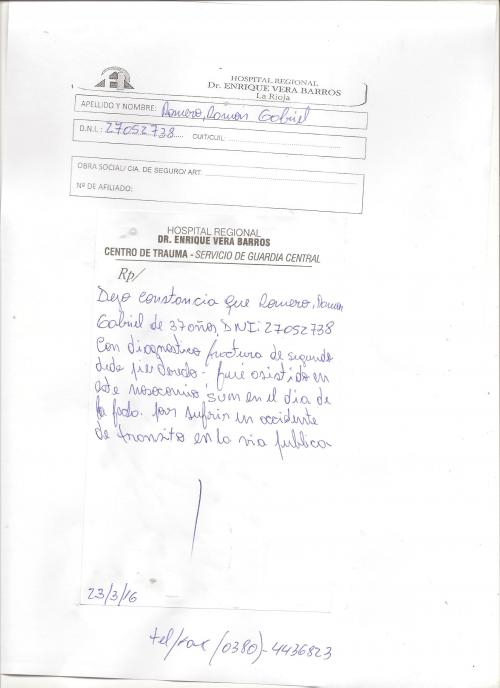 HOSPITAL REGIONAL
Dr. ENRIQUE VERA BARROS
La Rioja
APELLIDO Y NOMBRE: Romero, Ramon Gabriel
D.N.I.: 27052738 CUIT/CUIL:
OBRA SOCIAL/ CIA. DE SEGURO/ ART.
Nº DE AFILIADO:
HOSPITAL REGIONAL
DR. ENRIQUE VERA BARROS
CENTRO DE TRAUMA - SERVICIO DE GUARDIA CENTRAL
Rp/
Dejo constancia que Romero, Ramon
Gabriel de 37 años, DNI: 27052738
Con diagnostico fractura de segundo
dedo pie derecho - fué asistido en
este nosocomio en el dia de
la fecha. por sufrir un accidente
de transito en la via publica
23/3/16
tel/fax (0380)-4436823